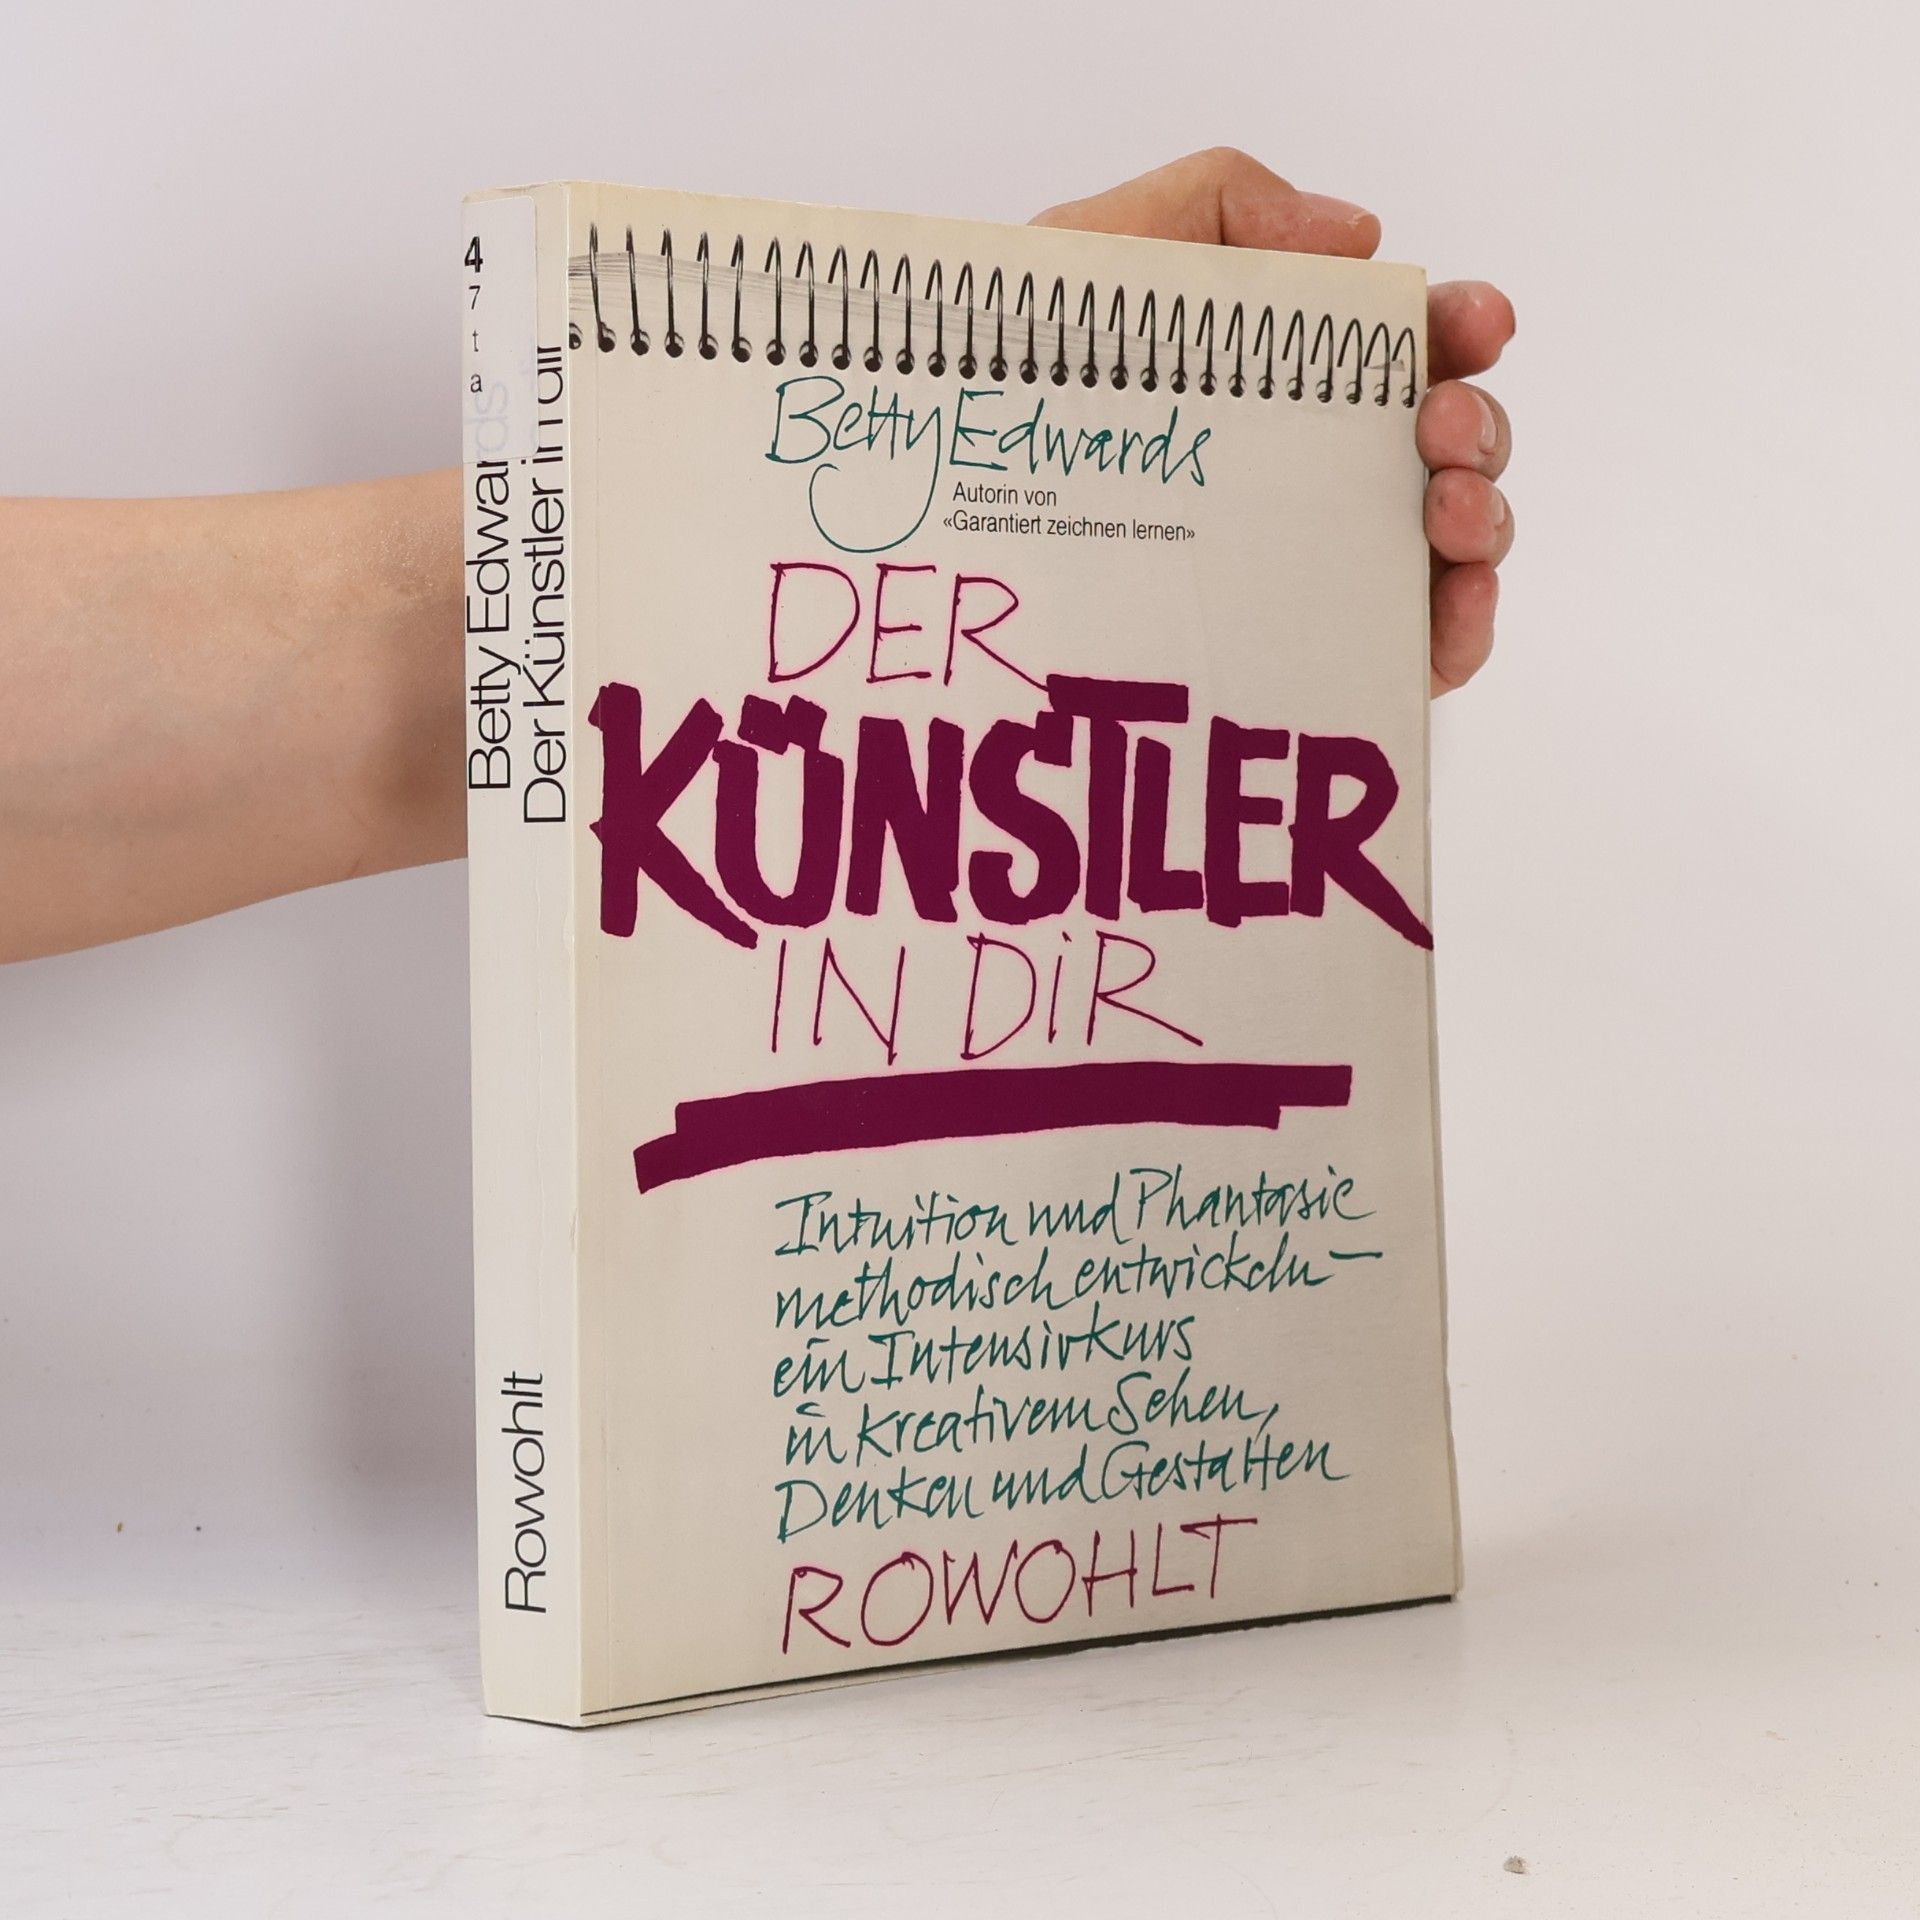 4
7
t
a
Betty Edwards
Der Künstler in dir
Rowohlt
Betty Edwards
Autorin von
«Garantiert zeichnen lernen»
DER
KÜNSTLER
IN DiR
Intuition und Phantasie
methodisch entwickeln –
ein Intensivkurs
in kreativem Sehen,
Denken und Gestalten
ROWOHLT